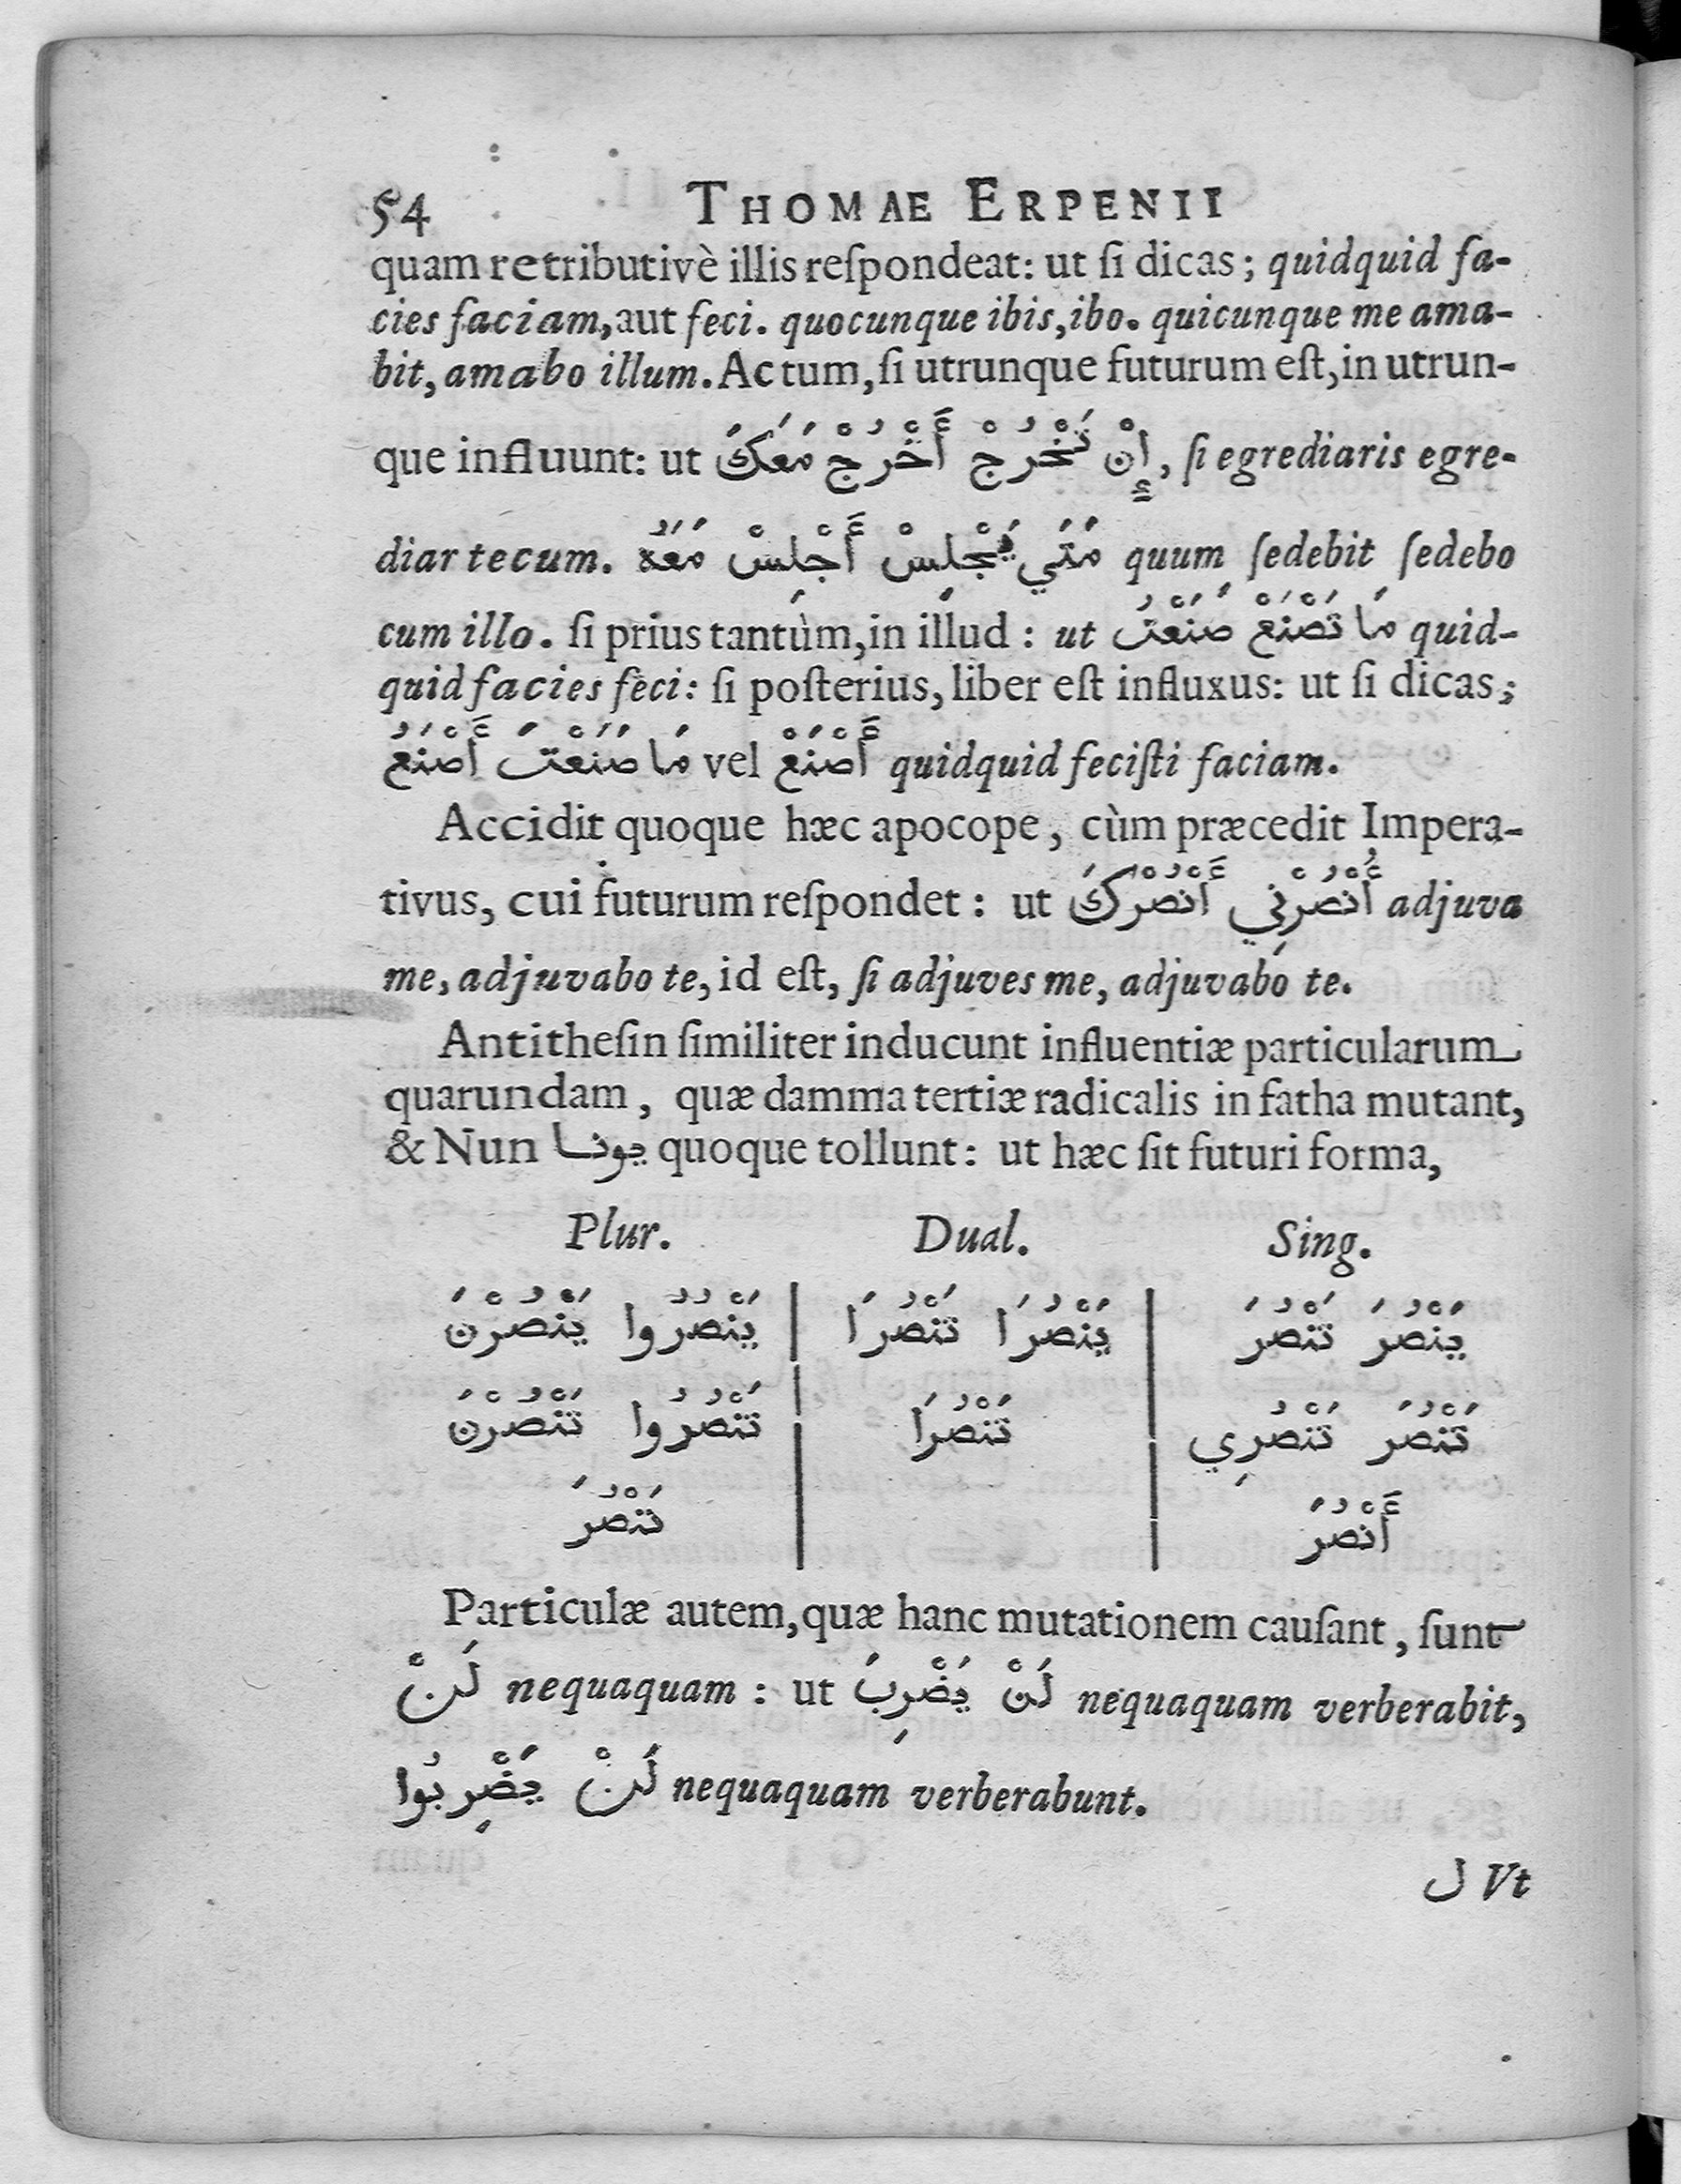 54 THOMAE ERPENII
quam retributivè illis reſpondeat: ut ſi dicas; quidquid fa-
cies faciam, aut feci. quocunque ibis, ibo. quicunque me ama-
bit, amabo illum. Ac tum, ſi utrunque futurum eſt, in utrun-
que influunt: ut إِنْ تَخْرُجْ أَخْرُجْ مَعَكَ, ſi egrediaris egre-
diar tecum. مَتَي يَجْلِسْ أَجْلِسْ مَعَهُ quum ſedebit ſedebo
cum illo. ſi prius tantùm, in illud: ut مَا تَصْنَعْ صَنَعْتُ quid-
quid facies feci: ſi poſterius, liber eſt influxus: ut ſi dicas;
مَا صَنَعْتَ أَصْنَعُ vel أَصْنَعْ quidquid feciſti faciam.
Accidit quoque hæc apocope, cùm præcedit Impera-
tivus, cui futurum reſpondet: ut أُنْصُرْنِي أَنْصُرْكَ adjuva
me, adjuvabo te, id eſt, ſi adjuves me, adjuvabo te.
Antitheſin ſimiliter inducunt influentiæ particularum
quarundam, quæ damma tertiæ radicalis in fatha mutant,
& Nun يونا quoque tollunt: ut hæc ſit futuri forma,
Plur. Dual. Sing.
يَنْصُرَ تَنْصُرَ | يَنْصُرَا تَنْصُرَا | يَنْصُرُوا يَنْصُرْنَ
تَنْصُرَ تَنْصُرِي | تَنْصُرَا | تَنْصُرُوا تَنْصُرْنَ
أَنْصُرَ | | تَنْصُرَ
Particulæ autem, quæ hanc mutationem cauſant, ſunt
لَنْ nequaquam: ut لَنْ يَضْرِبَ nequaquam verberabit,
لَنْ يَضْرِبُوا nequaquam verberabunt.
ل Vt